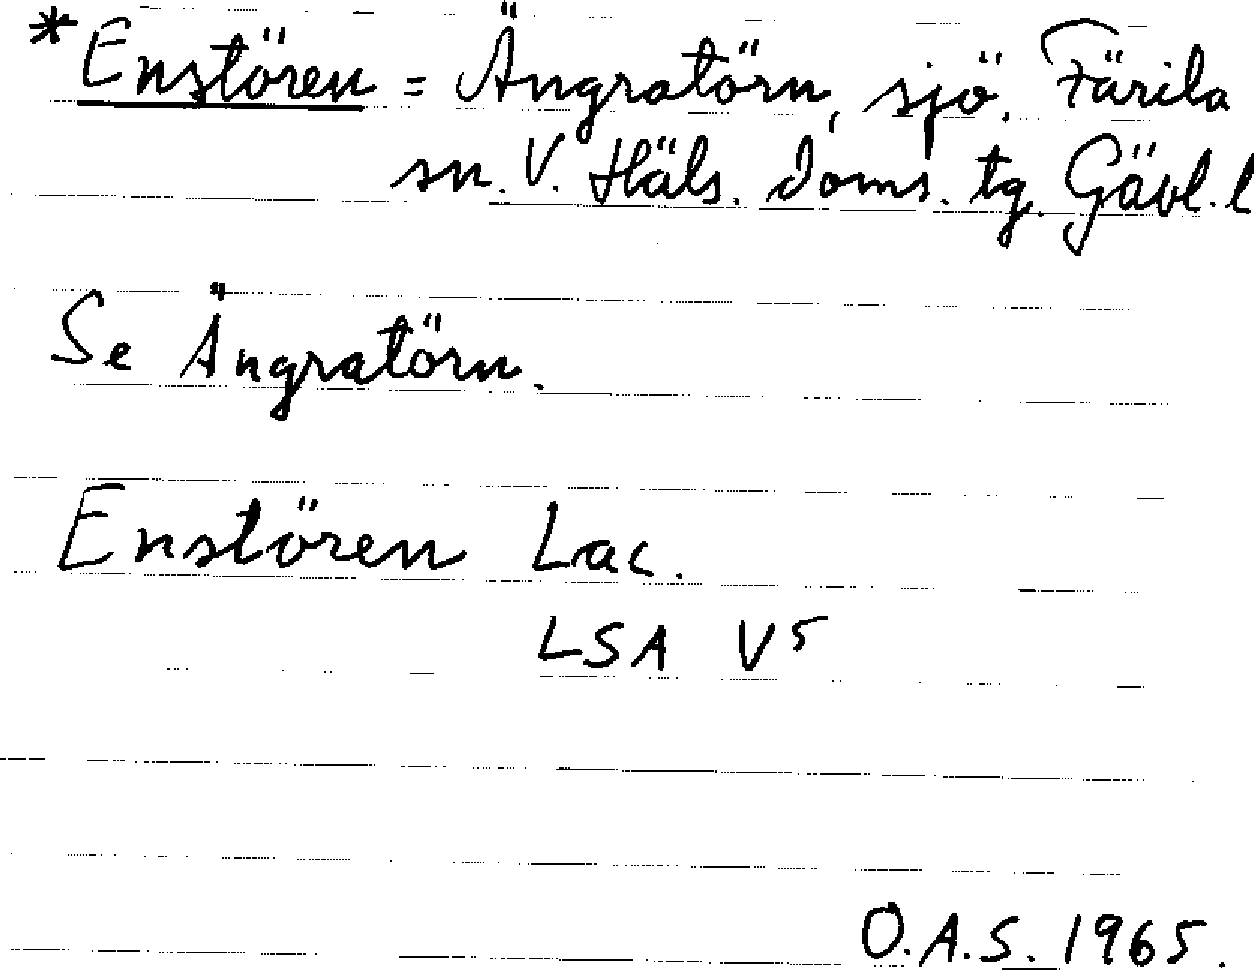 *Enstören = Ängratörn, sjö, Färila
sn. V. Häls. doms. tg. Gävl. l
Se Ängratörn.
Enstören Lac.
LSA V5
O.A.S. 1965.